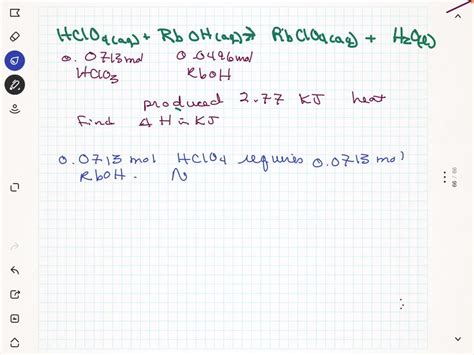 HClO4(aq) + RbOH(aq) → RbClO4(aq) + H2O(l)
0.0713 mol 0.0496 mol
HClO3 RbOH
produced 2.77 KJ heat
Find ΔH in KJ
0.0713 mol HClO4 requires 0.0713 mol
RbOH. N
99 / 99